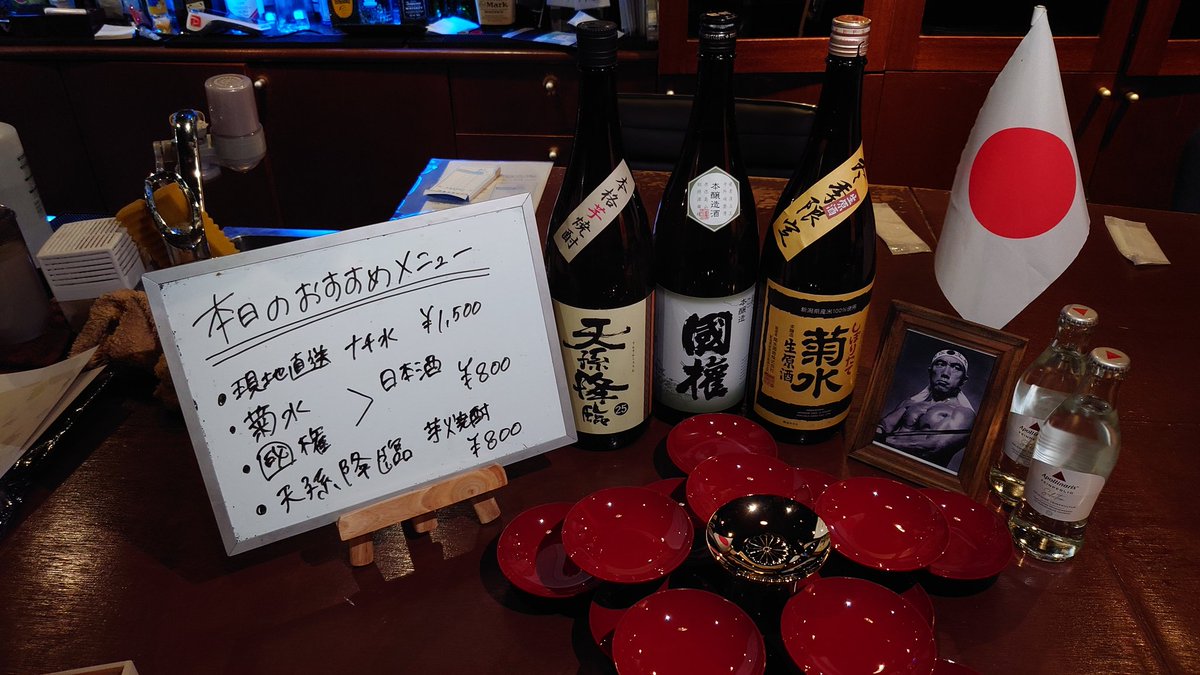 本日のおすすめメニュー
・現地直送 ナチ水 ¥1,500
・菊水 > 日本酒 ¥800
・國権
・天孫降臨 芋焼酎 ¥800
本格芋焼酎
天孫降臨
25
本醸造酒
本醸造
國権
冬季限定
生原酒
新潟県産米100%使用
しぼりたて
菊水
本醸造
生原酒
Apollinaris
Apollinaris
Mark